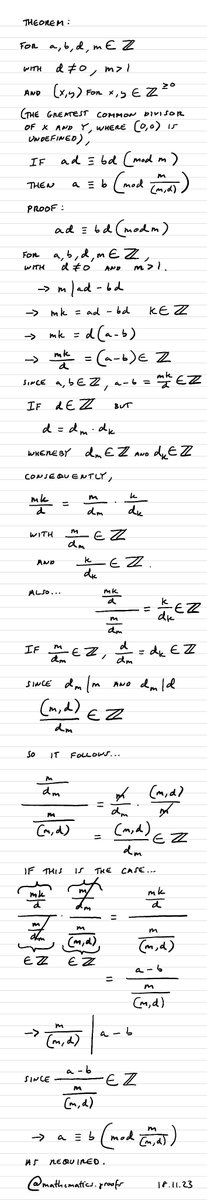 THEOREM:
FOR a,b,d,m ∈ ℤ
WITH d ≠ 0, m > 1
AND (x,y) FOR x,y ∈ ℤ^≥0
(THE GREATEST COMMON DIVISOR
OF X AND Y, WHERE (0,0) IS
UNDEFINED),
IF ad ≡ bd (mod m)
THEN a ≡ b (mod m/(m,d))
PROOF:
ad ≡ bd (mod m)
FOR a,b,d,m ∈ ℤ,
WITH d ≠ 0 AND m > 1.
→ m | ad - bd
→ mk = ad - bd k ∈ ℤ
→ mk = d(a-b)
→ mk/d = (a-b) ∈ ℤ
SINCE a,b ∈ ℤ, a-b = mk/d ∈ ℤ
IF d ∈ ℤ BUT
d = dₘ · dₖ
WHEREBY dₘ ∈ ℤ AND dₖ ∈ ℤ
CONSEQUENTLY,
mk/d = m/dₘ · k/dₖ
WITH m/dₘ ∈ ℤ
AND k/dₖ ∈ ℤ.
ALSO... (mk/d)/(m/dₘ) = k/dₖ ∈ ℤ
IF m/dₘ ∈ ℤ, d/dₘ = dₖ ∈ ℤ
SINCE dₘ|m AND dₘ|d
(m,d)/dₘ ∈ ℤ
SO IT FOLLOWS...
(m/dₘ)/(m/(m,d)) = m/dₘ · (m,d)/m
= (m,d)/dₘ ∈ ℤ
IF THIS IS THE CASE...
(mk/d)/(m/dₘ) · (m/dₘ)/(m/(m,d)) = (mk/d)/(m/(m,d))
∈ ℤ ∈ ℤ
= (a-b)/(m/(m,d))
→ m/(m,d) | a-b
SINCE (a-b)/(m/(m,d)) ∈ ℤ
→ a ≡ b (mod m/(m,d))
AS REQUIRED.
@mathematics.proofs 18.11.23